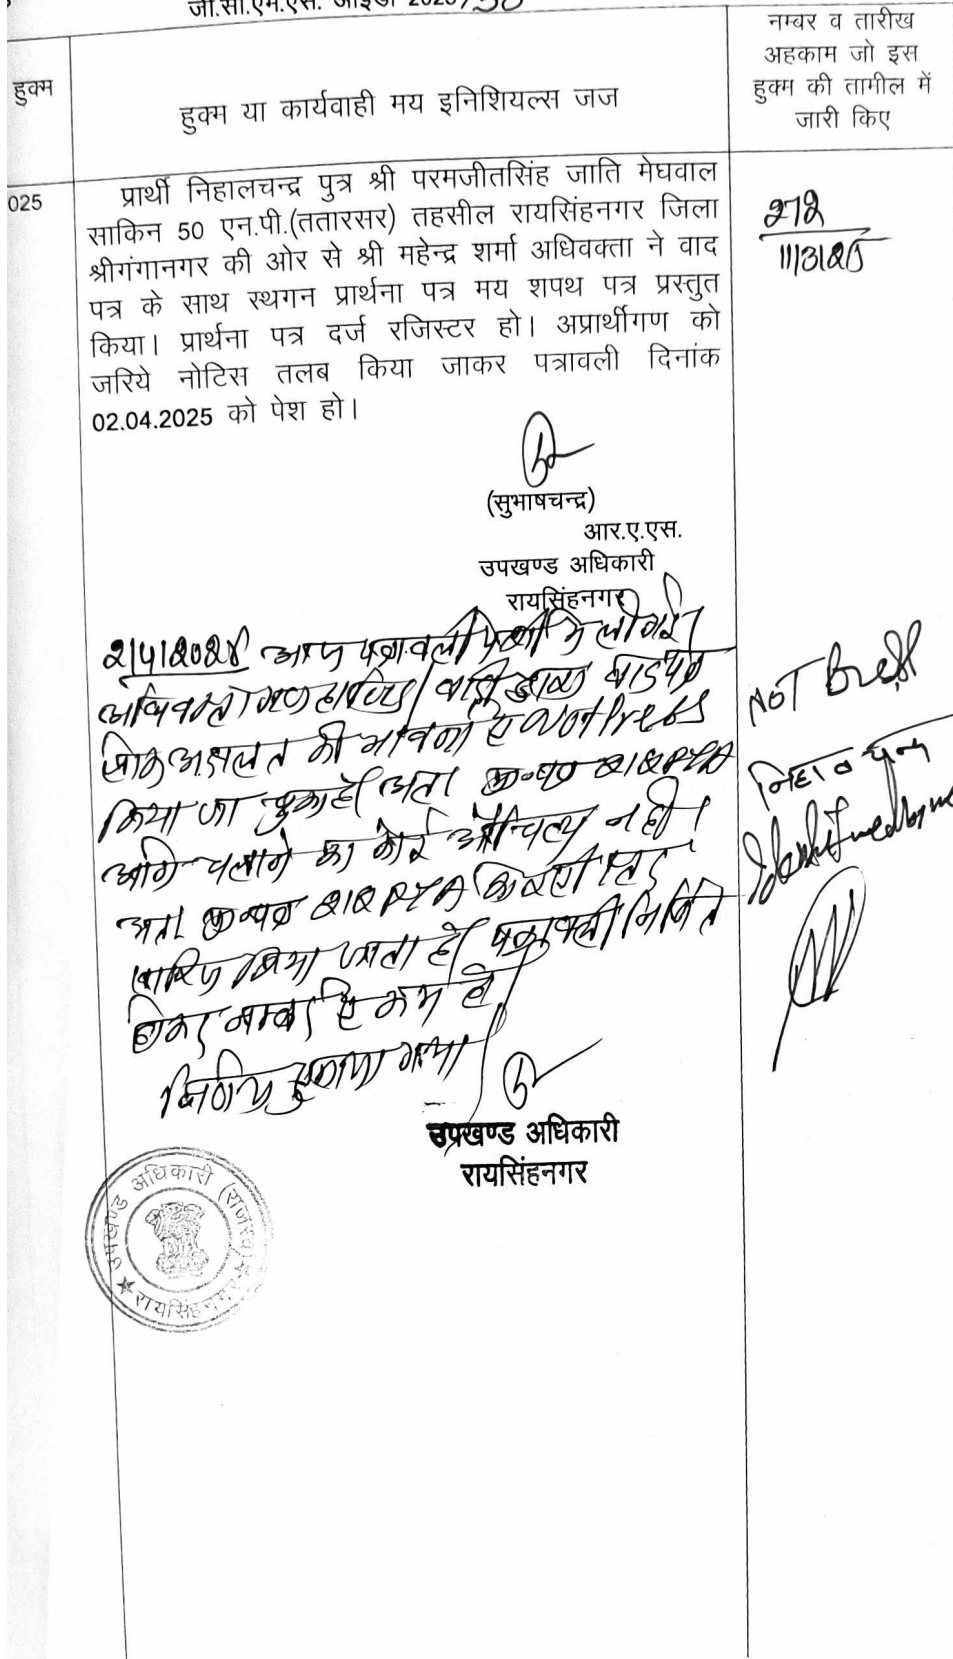 जी.सी.एम.एस. आईडी 2025/
हुक्म
हुक्म या कार्यवाही मय इनिशियल्स जज
नम्बर व तारीख
अहकाम जो इस
हुक्म की तामील में
जारी किए
025
प्रार्थी निहालचन्द्र पुत्र श्री परमजीतसिंह जाति मेघवाल
साकिन 50 एन.पी.(ततारसर) तहसील रायसिंहनगर जिला
श्रीगंगानगर की ओर से श्री महेन्द्र शर्मा अधिवक्ता ने वाद
पत्र के साथ स्थगन प्रार्थना पत्र मय शपथ पत्र प्रस्तुत
किया। प्रार्थना पत्र दर्ज रजिस्टर हो। अप्रार्थीगण को
जरिये नोटिस तलब किया जाकर पत्रावली दिनांक
02.04.2025 को पेश हो।
272
11/3/25
(सुभाषचन्द्र)
आर.ए.एस.
उपखण्ड अधिकारी
रायसिंहनगर
आज पत्रावली पेशी में ली गई।
अधिवक्तागण हाजिर। वादी द्वारा वाद पत्र
लोक अदालत की भावना से Not Press
किया जा चुका है। अतः 212 RTA
आगे चलाने का कोई औचित्य नहीं।
अतः 212 RTA
खारिज किया जाता है। पत्रावली निर्णित
होकर नम्बर से कम हो।
निर्णय सुनाया गया।
NOT Press
उपखण्ड अधिकारी
रायसिंहनगर
उपखण्ड अधिकारी (राजस्व)
रायसिंहनगर